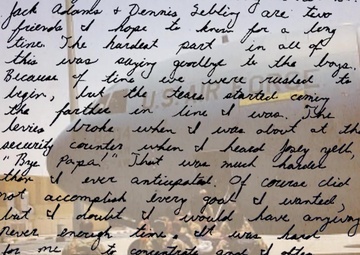 Jack Adams & Dennis Sebling are two
friends I hope to know for a long
time. The hardest part in all of
this was saying goodbye to the boys.
Because of time we were rushed to
begin, but the tears started coming
the farther in line I was. The
levies broke when I was about at the
security counter when I heard Joey yell,
"Bye Papa!" That was much harder
than I ever anticipated. Of course did
not accomplish every goal I wanted,
but I doubt I would have anyway
never enough time. It was hard
for me to concentrate and I often
U.S. AIR FORCE